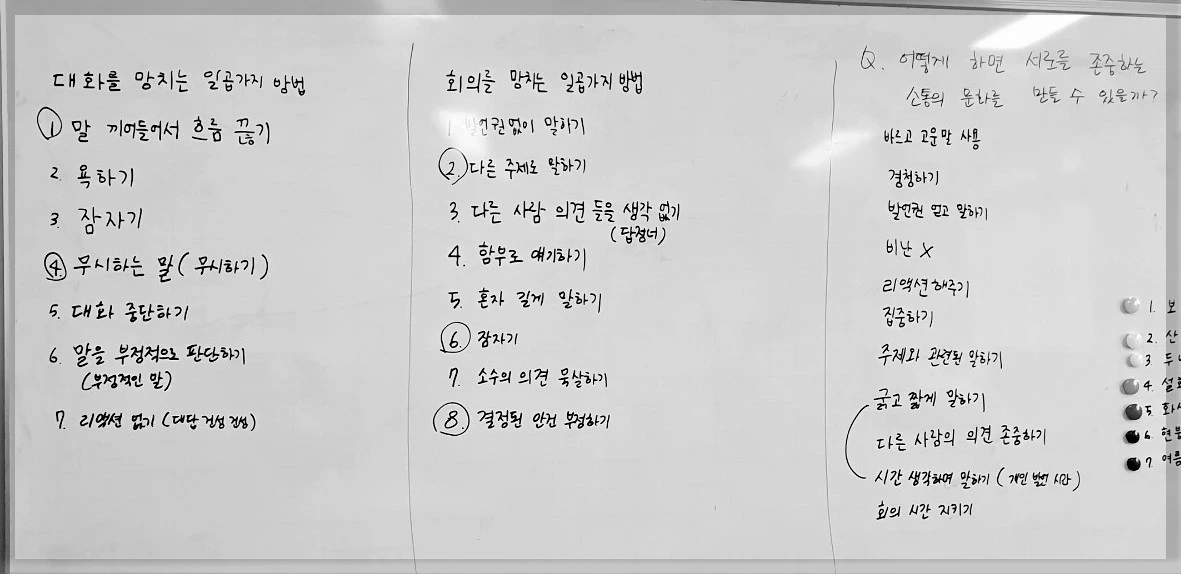 대화를 망치는 일곱가지 방법
① 말 끼어들어서 흐름 끊기
2. 욕하기
3. 잠자기
④ 무시하는 말 (무시하기)
5. 대화 중단하기
6. 말을 부정적으로 판단하기
(부정적인 말)
7. 리액션 없기 (대답 건성건성)
회의를 망치는 일곱가지 방법
1. 발언권 없이 말하기
② 다른 주제로 말하기
3. 다른 사람 의견 들을 생각 없기
(답정너)
4. 함부로 얘기하기
5. 혼자 길게 말하기
⑥ 잠자기
7. 소수의 의견 묵살하기
⑧ 결정된 안건 부정하기
Q. 어떻게 하면 서로를 존중하는
소통의 문화를 만들 수 있을까?
바르고 고운말 사용
경청하기
발언권 얻고 말하기
비난 X
리액션해주기
집중하기
주제와 관련된 말하기
굵고 짧게 말하기
다른 사람의 의견 존중하기
시간 생각하며 말하기 (개인 발언 시간)
회의 시간 지키기
1. 보
2. 산
3. 두
4. 설
5. 화
6. 현
7. 여름